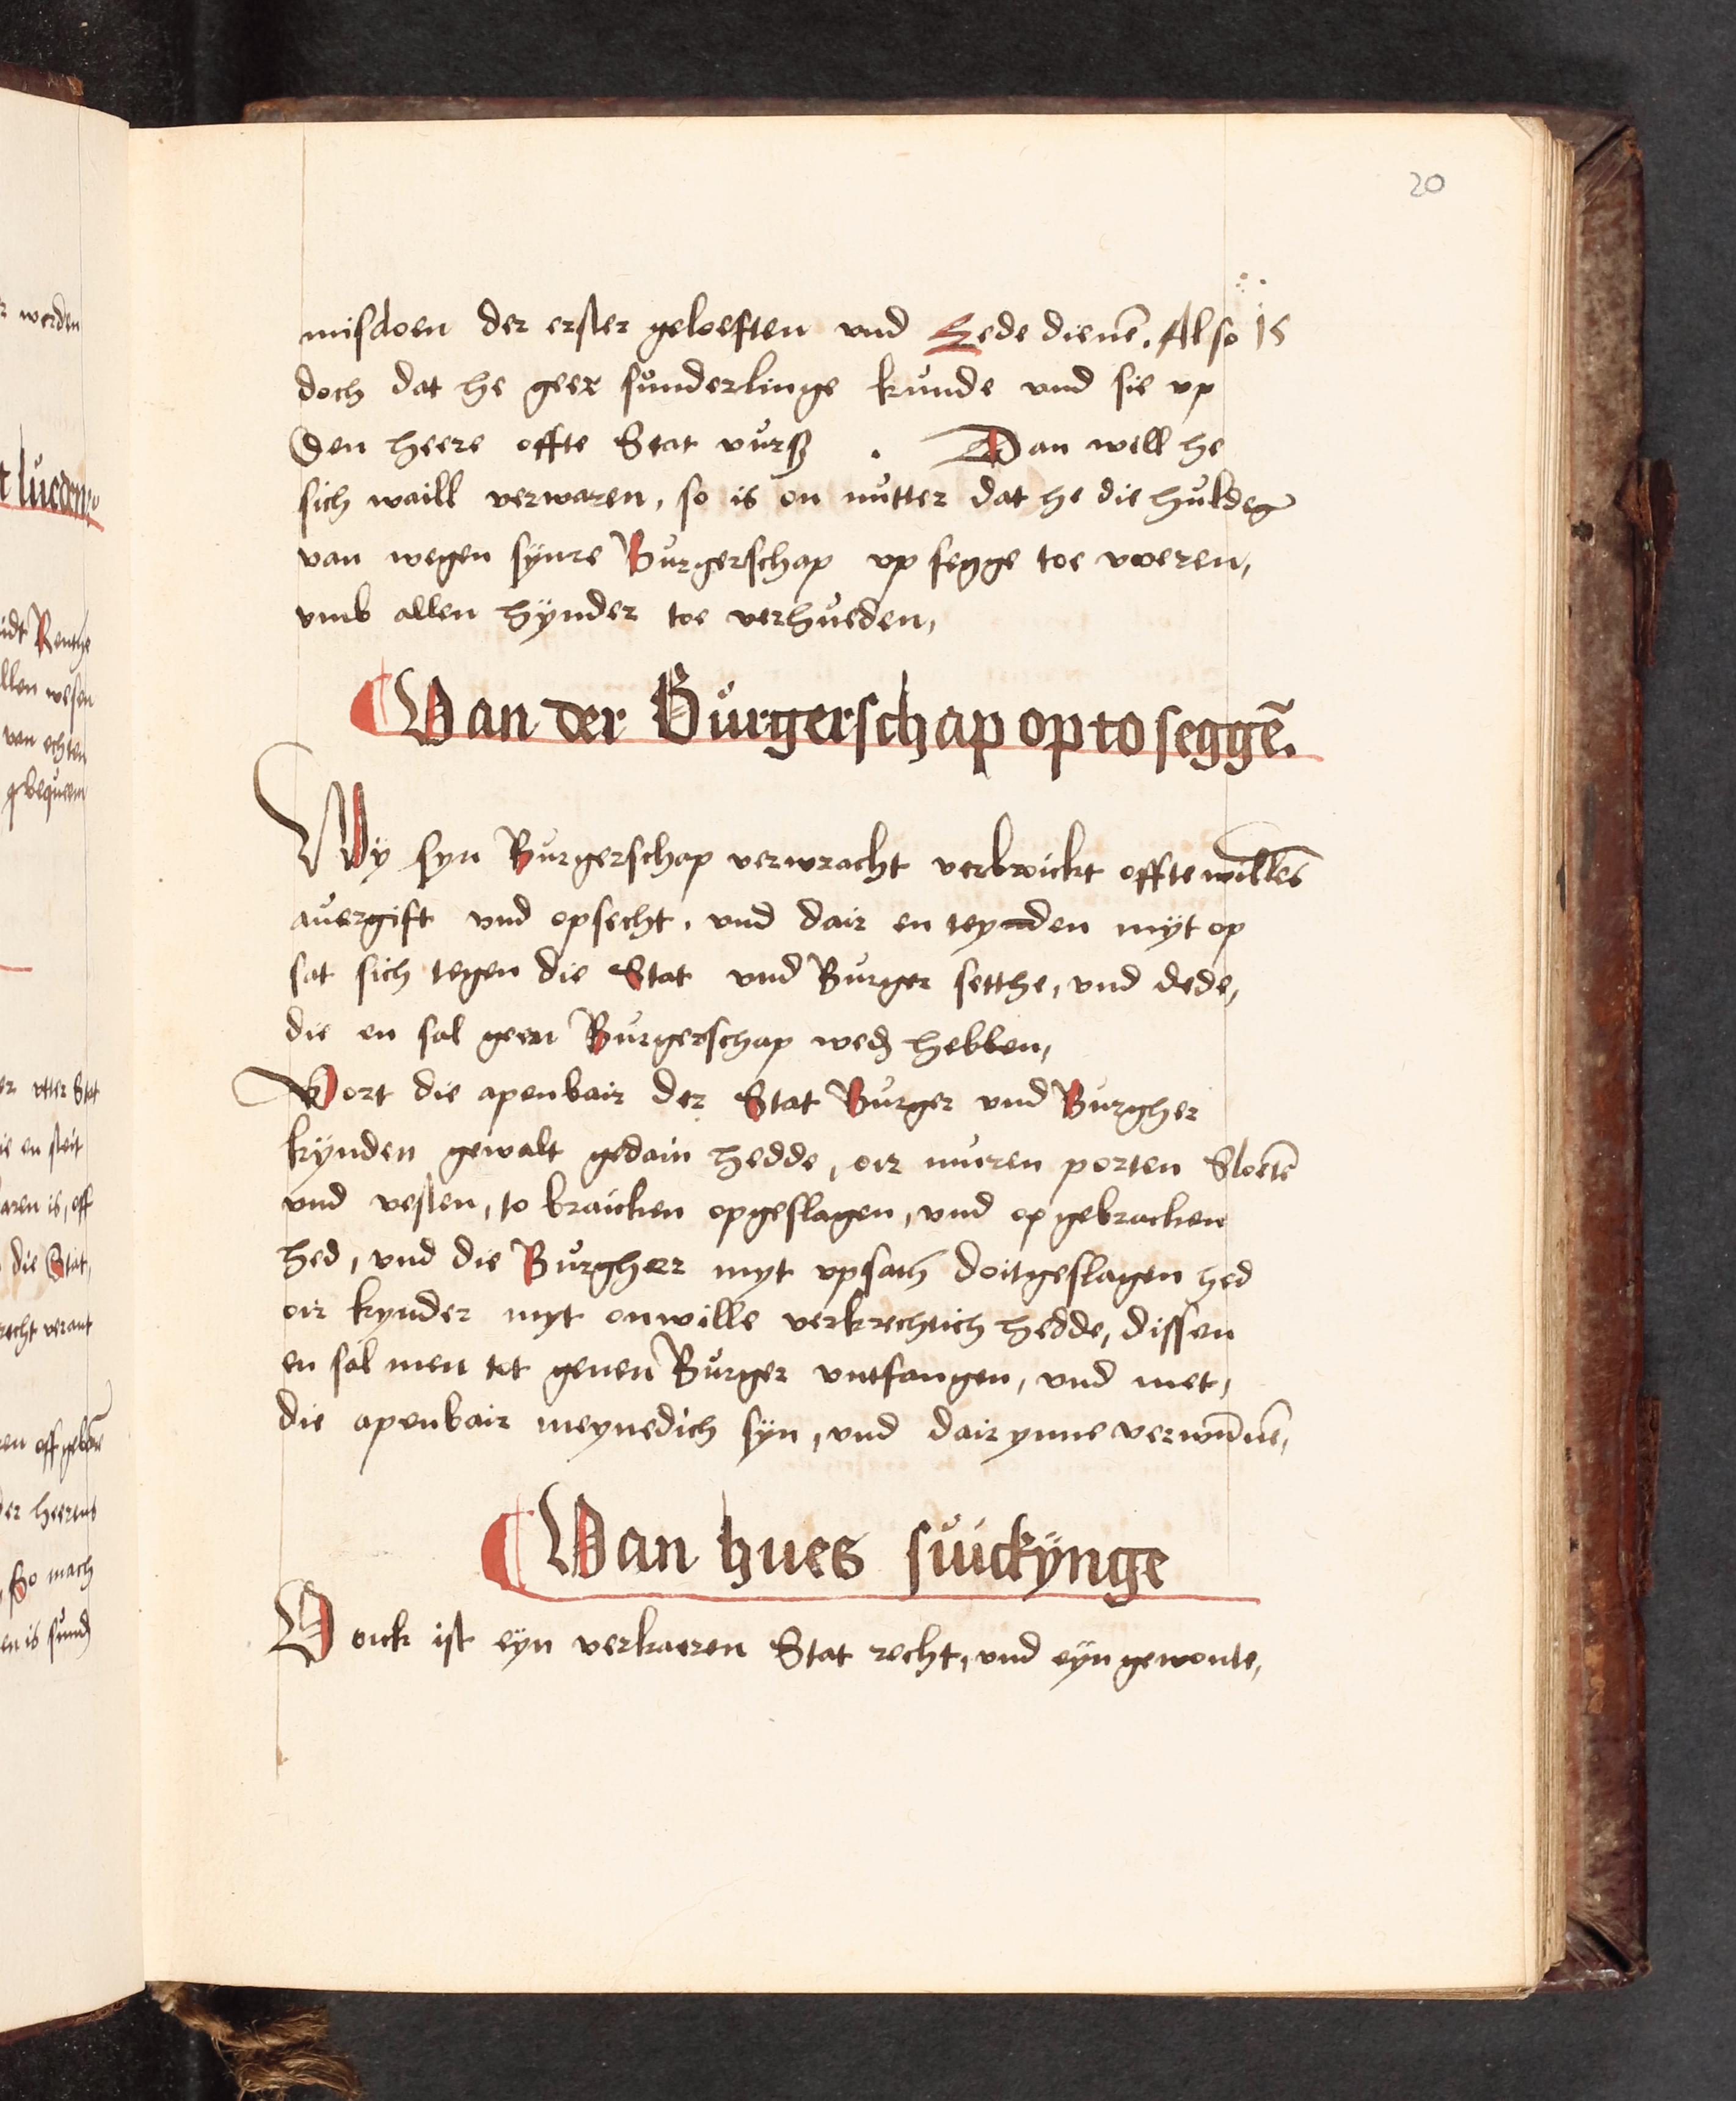 20
misdoen der erster geloeften vnd Eede dienē. Also is
doch dat he geer sunderlinge kunde vnd sie vp
den heere offte Stat vurß . Dan will he
sich waill verwaren, so is on nutter dat he die huldeg
van wegen synre Burgerschap vp segge toe voeren,
vmb allen hÿnder toe verhueden,
Van der Burgerschap op to seggē.
Wÿ syn Burgerschap verwracht verbroickt offte willēs
auergift vnd opsecht, vnd dair en teynden mÿt op
sat sich tegen die Stat vnd Burger setthe, vnd dede,
die en sal geen Burgerschap wed hebben,
Vort die apenbair der Stat Burger vnd Burgher
kÿnden gewalt gedain hedde, oir muren porten Sloetē
vnd vesten, to braicken opgeslagen, vnd op gebracken
hed, vnd die Burgherr myt vpsath doitgeslagen hed
oir kynder myt onwille verkrechtich hedde, dissen
en sal men tot genen Burger vntfangen, vnd met,
die apenbair meynedich sÿn, vnd dair ynne verwūnē,
Van hues suickÿnge
Oick ist eÿn verkaeren Stat recht, vnd eÿn gewonte,
r werden
t lueden
idt Renthe
llen wesen
van echten
gebequeem
er vtter Stat
ie en steit
aren is, off
die Stat,
recht verant
en off gebōr
der heerens
so mach
en is sund